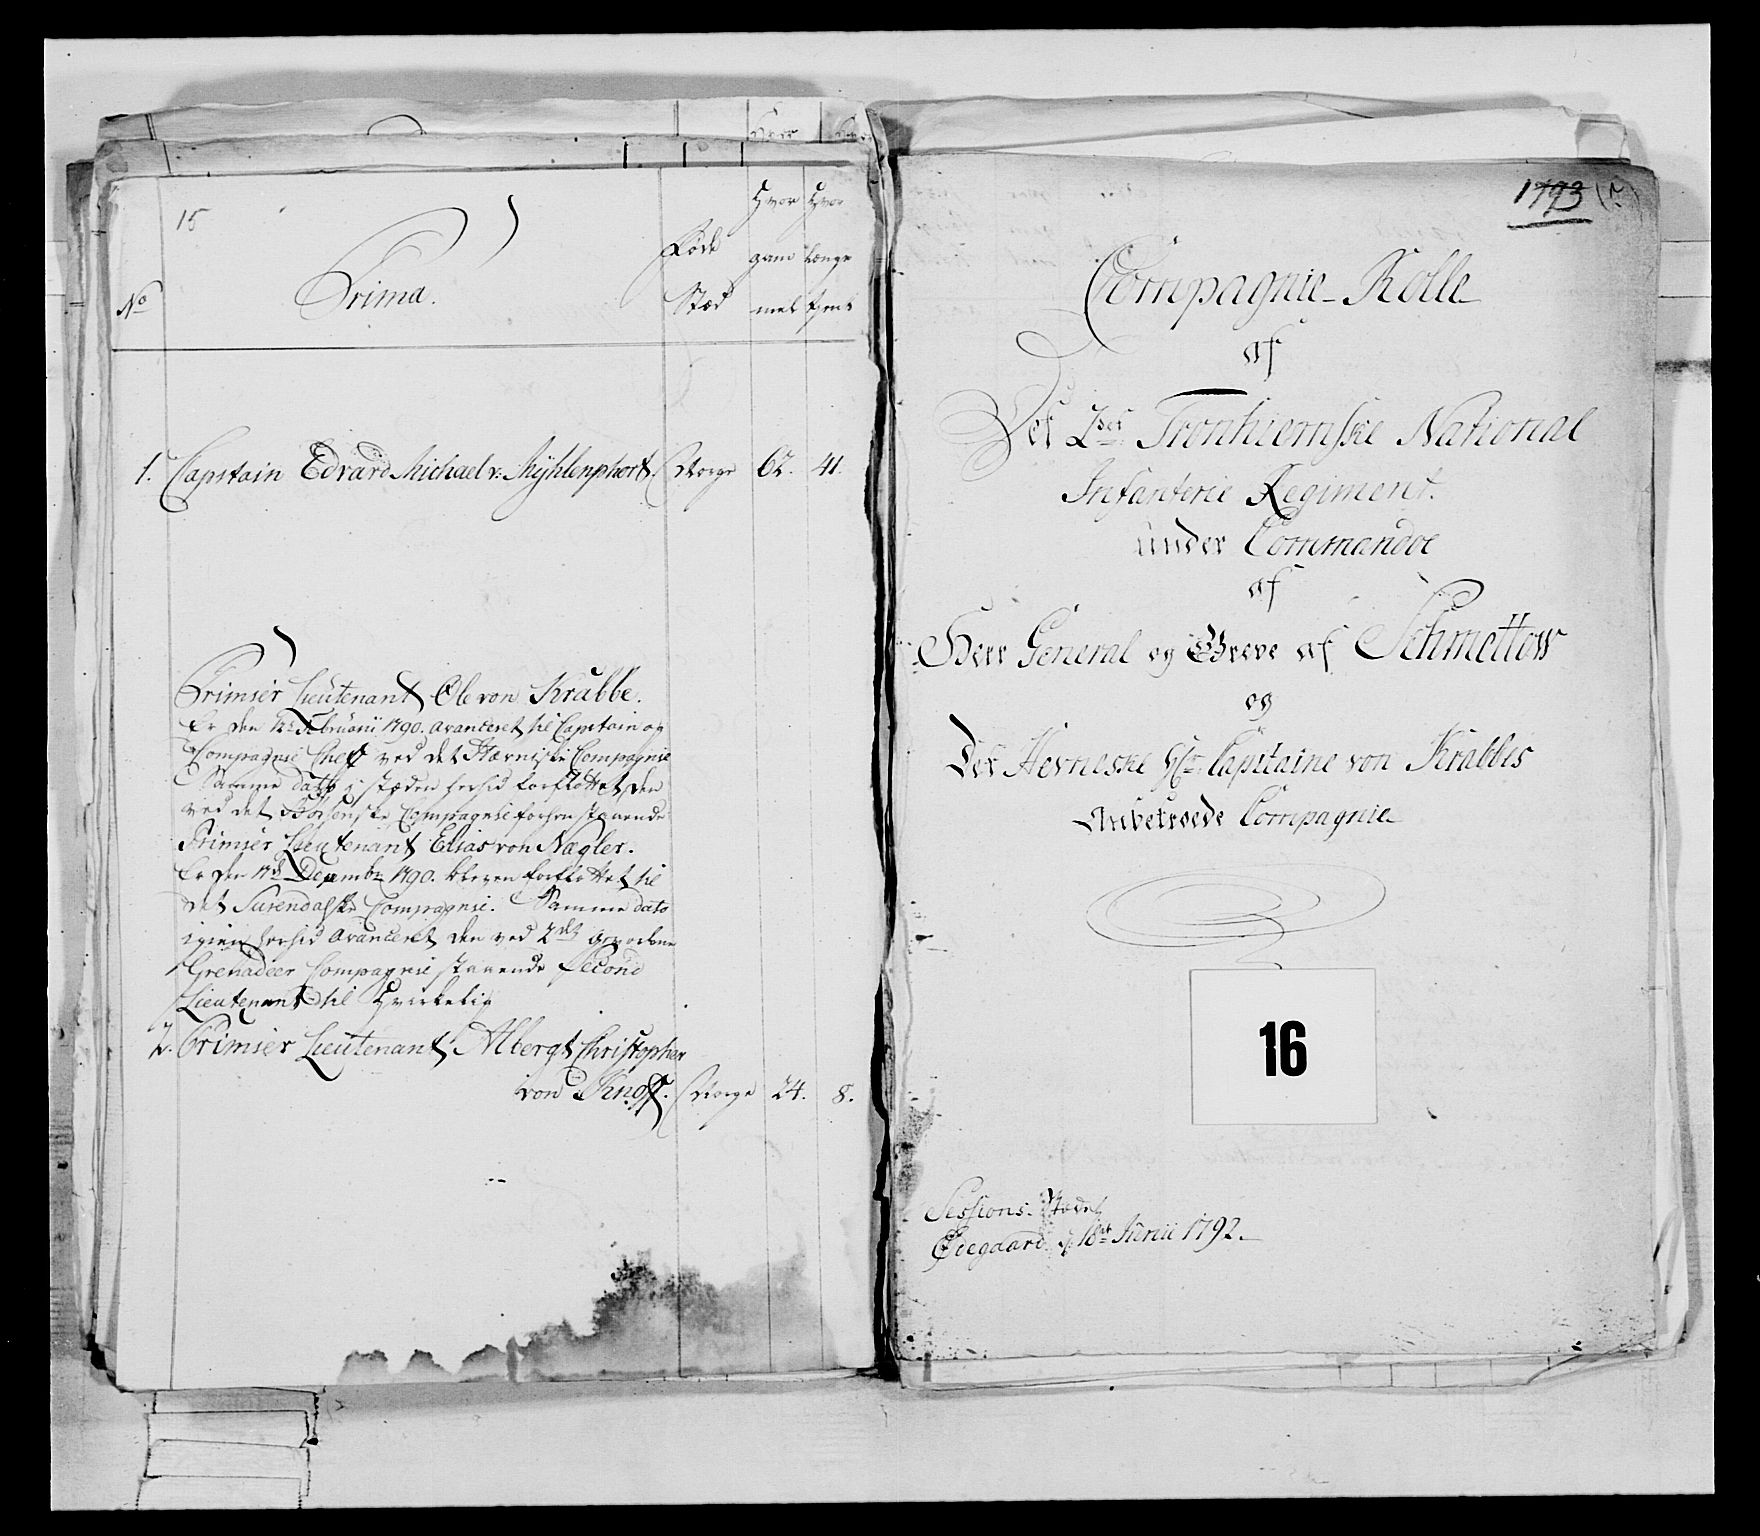 15
No
Prima.
Føde
Stæd
Hvor
gam
mel
Hvor
længe
tient
1. Capitain Edvard Michael v: Mÿhlenphort. Norge 62. 41.
Primier Lieutenant Ole von Krabbe.
Er den 12te Februarii 1790. avanceret til Capitain og
Compagnie Cheff ved det Hævniske Compagnie
Samme dato i stæden herhid forfløttet den
ved det Børsenske Compagnie forhen staaende
Primier Lieutenant Elias von Nægler.
Er den 17de Decembr 1790. bleven forfløttet til
det Surendalske Compagnie. Samme dato
igien herhid avanceret den ved 2det
Grenadeer Compagnie staaende Second
Lieutenant til Hvirkelig
2. Primier Lieutenant Albergt Christopher
von Knoff. Norge 24. 8.
1793
Compagnie-Rolle
af
Det 2det Tronhiemske National
Infanterie Regiment.
under Commandoe
af
Herr General og Greve af Schmettow
og
Det Hevneske Hr. Capitaine von Krabbes
Anbetroede Compagnie
16
Sessions-Stædet
Ødegaard d. 18de Junii 1792.